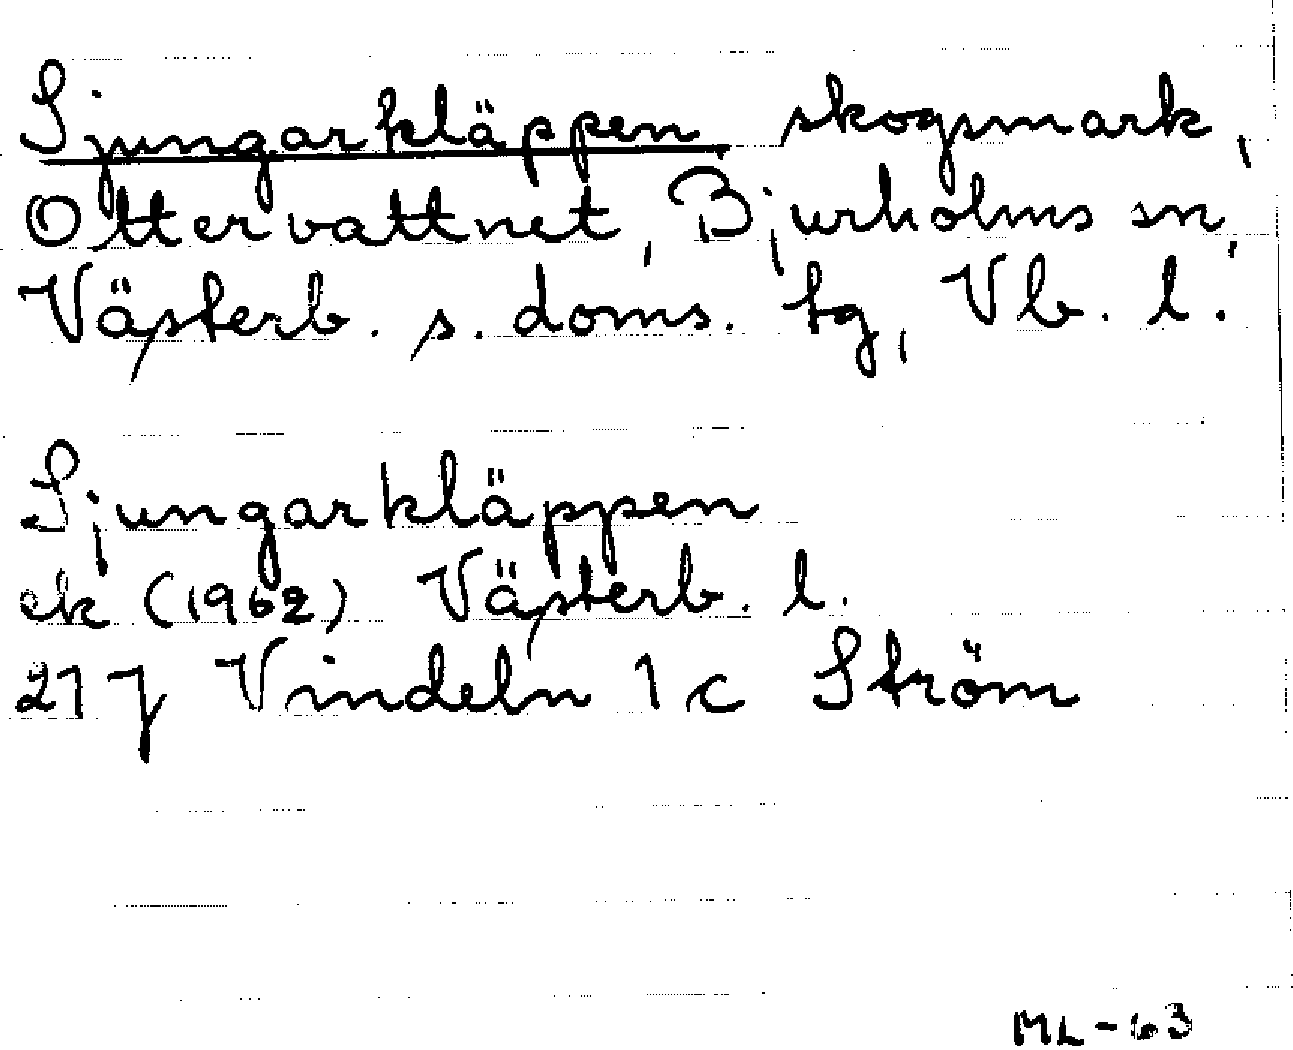 Sjungarkläppen, skogsmark,
Ottervattnet, Bjurholms sn,
Västerb. s. doms. tg, Vb. l.
Sjungarkläppen
ek (1962) Västerb. l.
21 j Vindeln 1 c Ström
ML-63